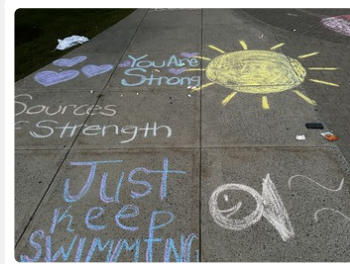 You Are
Strong
Sources
of Strength
Just
Keep
SWIMMING